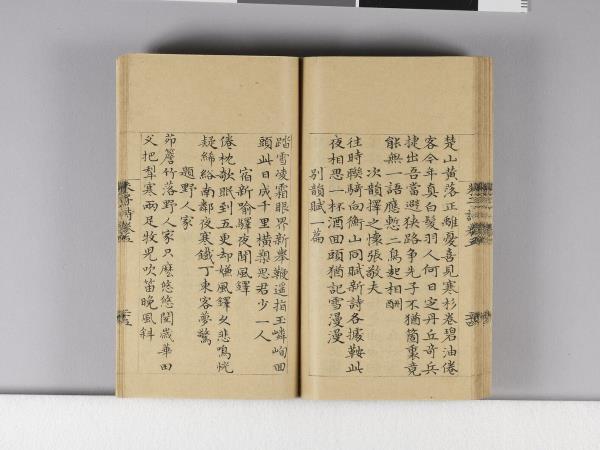 楚山黃落正離憂喜見寒杉卷碧油倦
客今年真白髮羽人何日定丹丘奇兵
捷出吾當避狹路爭先子不猶箇裏竟
能無一語應慙二鳥起相酬
次韻擇之懷張敬夫
往時聯騎向衡山同賦新詩各據鞍此
夜相思一杯酒回頭猶記雪漫漫
別韻賦一篇
踏雪凌霜眼界新舉鞭遥指玉嶙峋回
頭此日成千里橫槊思君少一人
宿新喻驛夜聞風鐸
倦枕欹眠到五更却嫌風鐸久悲鳴恍
疑絺綌南鄰夜寒鐵丁東客夢驚
題野人家
茆簷竹落野人家只麼悠悠閱歲華田
父把犁寒雨足牧兒吹笛晚風斜